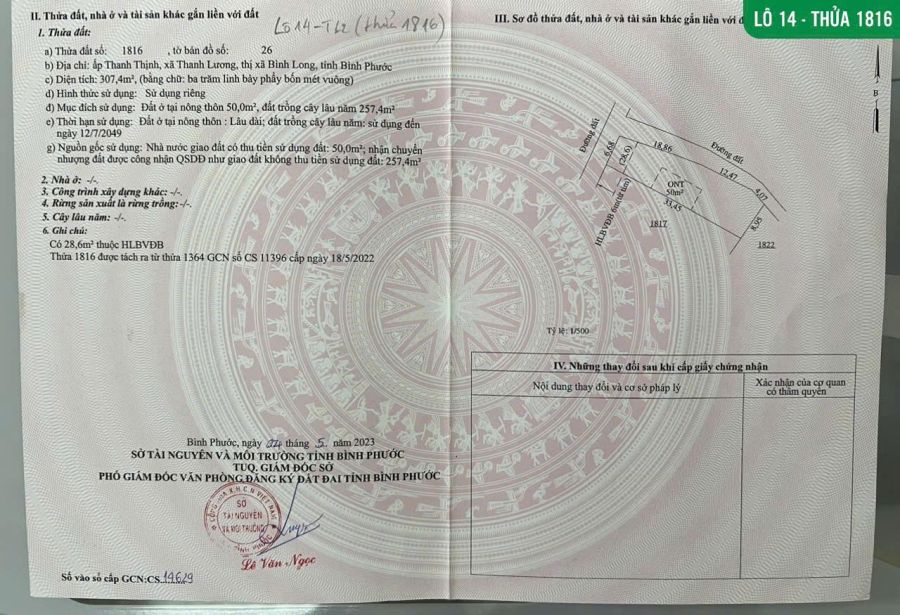 LÔ 14 - THỬA 1816
II. Thửa đất, nhà ở và tài sản khác gắn liền với đất
Lô 14 - TL2 (thửa 1816)
1. Thửa đất:
a) Thửa đất số: 1816 , tờ bản đồ số: 26
b) Địa chỉ: ấp Thanh Thịnh, xã Thanh Lương, thị xã Bình Long, tỉnh Bình Phước
c) Diện tích: 307,4m², (bằng chữ: ba trăm linh bảy phẩy bốn mét vuông)
d) Hình thức sử dụng: Sử dụng riêng
đ) Mục đích sử dụng: Đất ở tại nông thôn 50,0m², đất trồng cây lâu năm 257,4m²
e) Thời hạn sử dụng: Đất ở tại nông thôn : Lâu dài; đất trồng cây lâu năm: sử dụng đến
ngày 12/7/2049
g) Nguồn gốc sử dụng: Nhà nước giao đất có thu tiền sử dụng đất: 50,0m²; nhận chuyển
nhượng đất được công nhận QSDĐ như giao đất không thu tiền sử dụng đất: 257,4m²
2. Nhà ở: -/-.
3. Công trình xây dựng khác: -/-.
4. Rừng sản xuất là rừng trồng: -/-.
5. Cây lâu năm: -/-.
6. Ghi chú:
Có 28,6m² thuộc HLBVĐB
Thửa 1816 được tách ra từ thửa 1364 GCN số CS 11396 cấp ngày 18/5/2022
Bình Phước, ngày 04 tháng 5 năm 2023
SỞ TÀI NGUYÊN VÀ MÔI TRƯỜNG TỈNH BÌNH PHƯỚC
TUQ. GIÁM ĐỐC SỞ
PHÓ GIÁM ĐỐC VĂN PHÒNG ĐĂNG KÝ ĐẤT ĐAI TỈNH BÌNH PHƯỚC
SỞ
TÀI NGUYÊN
VÀ MÔI TRƯỜNG
Lê Văn Ngọc
Số vào sổ cấp GCN:CS 19629
III. Sơ đồ thửa đất, nhà ở và tài sản khác gắn liền với
B
Đường đất
Đường đất
6,68
(28,6)
18,86
12,47
4,07
ONT
50m²
33,45
8,95
1
HLBVĐB 6m(từ tim)
1817
1822
Tỷ lệ: 1/500
IV. Những thay đổi sau khi cấp giấy chứng nhận
Nội dung thay đổi và cơ sở pháp lý
Xác nhận của cơ quan
có thẩm quyền